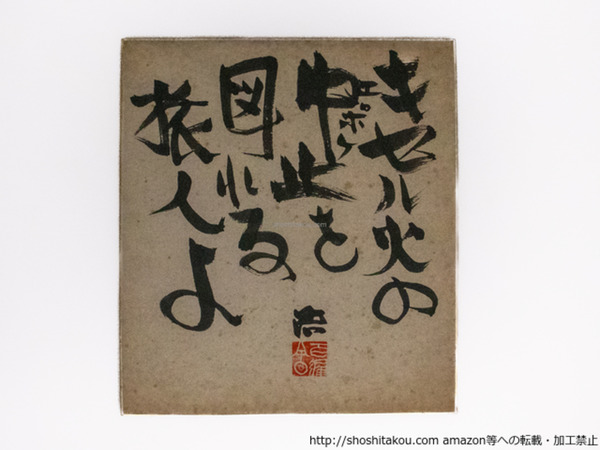 キセル火の
エポケ
中止を
図れる
旅人よ
http://shoshitakou.com amazon等への転載・加工禁止